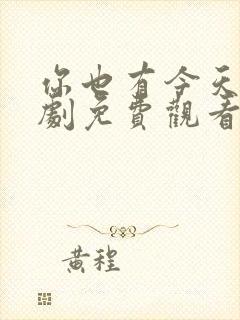 你也有今天
劇免費觀看
黃程